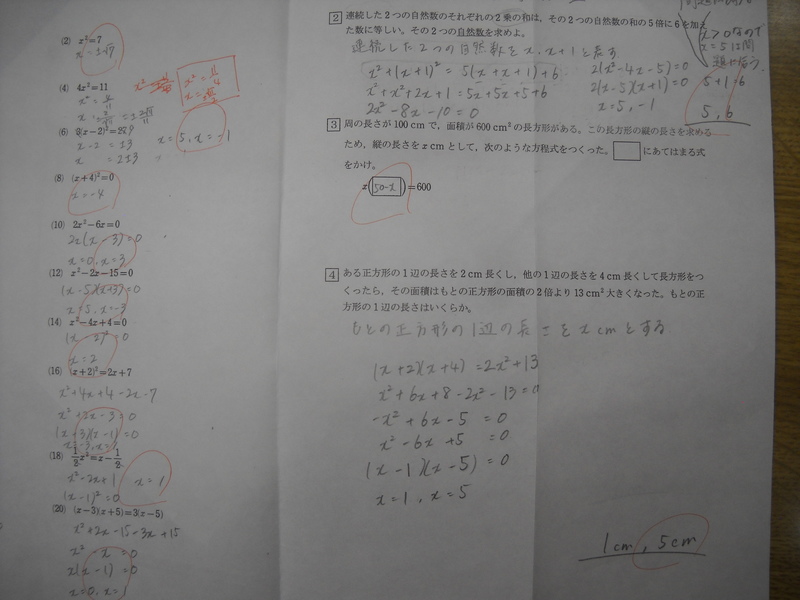 (2) x²=7
x = ±√7
(4) 4x²=11
x² =
x =
(6) 3(x-2)²=27
x-2 = ±3
x = 2±3
x=5, x=-1
(8) (x+4)²=0
x=-4
(10) 2x²-6x=0
2x(x-3)=0
x=0, x=3
(12) x²-2x-15=0
(x-5)(x+3)=0
x=5, x=-3
(14) x²-4x+4=0
(x-2)²=0
x=2
(16) (x+2)²=2x+7
x²+4x+4-2x-7
x²+2x-3=0
(x+3)(x-1)=0
x=-3, x=1
(18) 1/2x²=x-1/2
x²-2x+1
x=1
(x-1)²=0
(20) (x-3)(x+5)=3(x-5)
x²+2x-15-3x+15
x²-x=0
x(x-1)=0
x=0, x=1
2 連続した2つの自然数のそれぞれの2乗の和は,その2つの自然数の和の5倍に6を加え
た数に等しい。その2つの自然数を求めよ。
連続した2つの自然数をx, x+1と表す
x²+(x+1)² = 5(x+x+1)+6
x²+x²+2x+1=5x+5x+5+6
2x²-8x-10=0
2(x²-4x-5)=0
2(x-5)(x+1)=0
x=5, -1
x>0なので
5+1=6
5, 6
3 周の長さが100cmで,面積が600cm²の長方形がある。この長方形の縦の長さを求める
ため,縦の長さをxcmとして,次のような方程式をつくった。 にあてはまる式
をかけ。
x(50-x)=600
4 ある正方形の1辺の長さを2cm長くし,他の1辺の長さを4cm長くして長方形をつ
くったら,その面積はもとの正方形の面積の2倍より13cm²大きくなった。もとの正
方形の1辺の長さはいくらか。
もとの正方形の1辺の長さをxcmとする
(x+2)(x+4)=2x²+13
x²+6x+8-2x²-13=0
-x²+6x-5=0
x²-6x+5=0
(x-1)(x-5)=0
x=1, x=5
1cm, 5cm